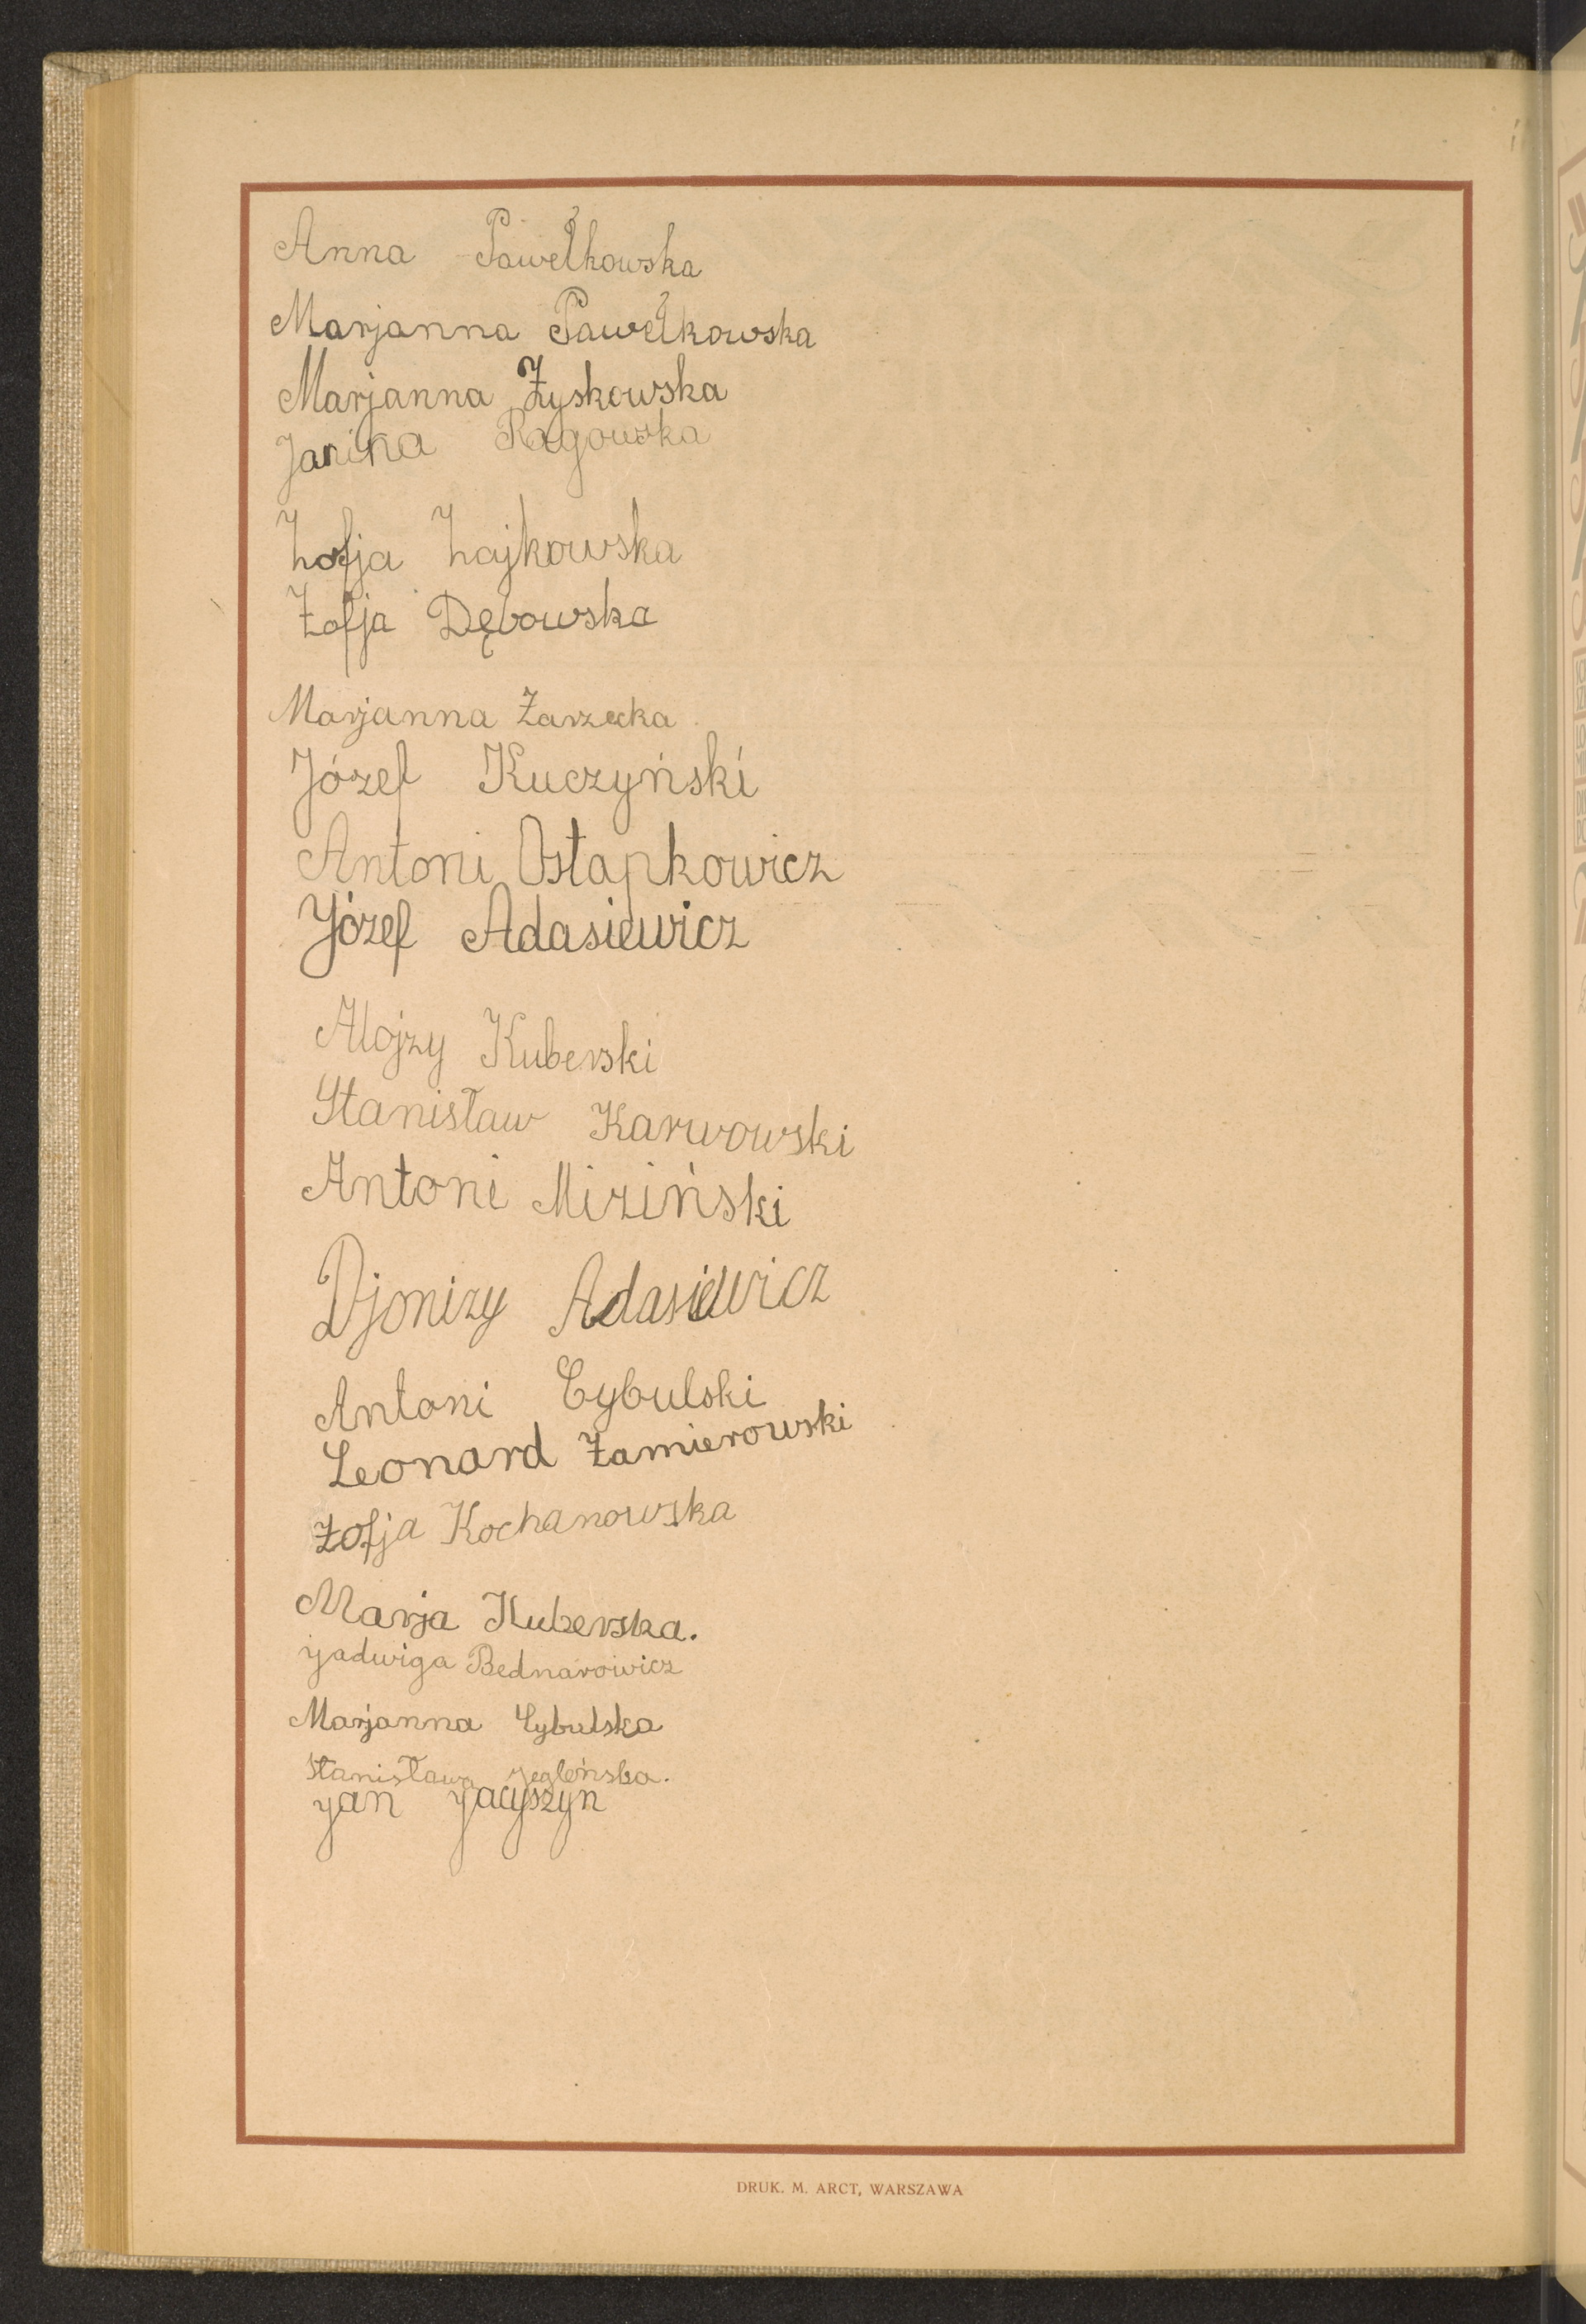 Anna Pawełkowska
Marjanna Pawełkowska
Marjanna Zyskowska
Janina Ragowska
Zofja Zajkowska
Zofja Dębowska
Marjanna Zarzecka
Józef Kuczyński
Antoni Ostapkowicz
Józef Adasiewicz
Alojzy Kuberski
Stanisław Karwowski
Antoni Miziński
Djonizy Adasiewicz
Antoni Cybulski
Leonard Zamierowski
Zofja Kochanowska
Marja Kuberska.
Jadwiga Bednarowicz
Marjanna Cybulska
Stanisława
Jan Jacyszyn
DRUK. M. ARCT, WARSZAWA